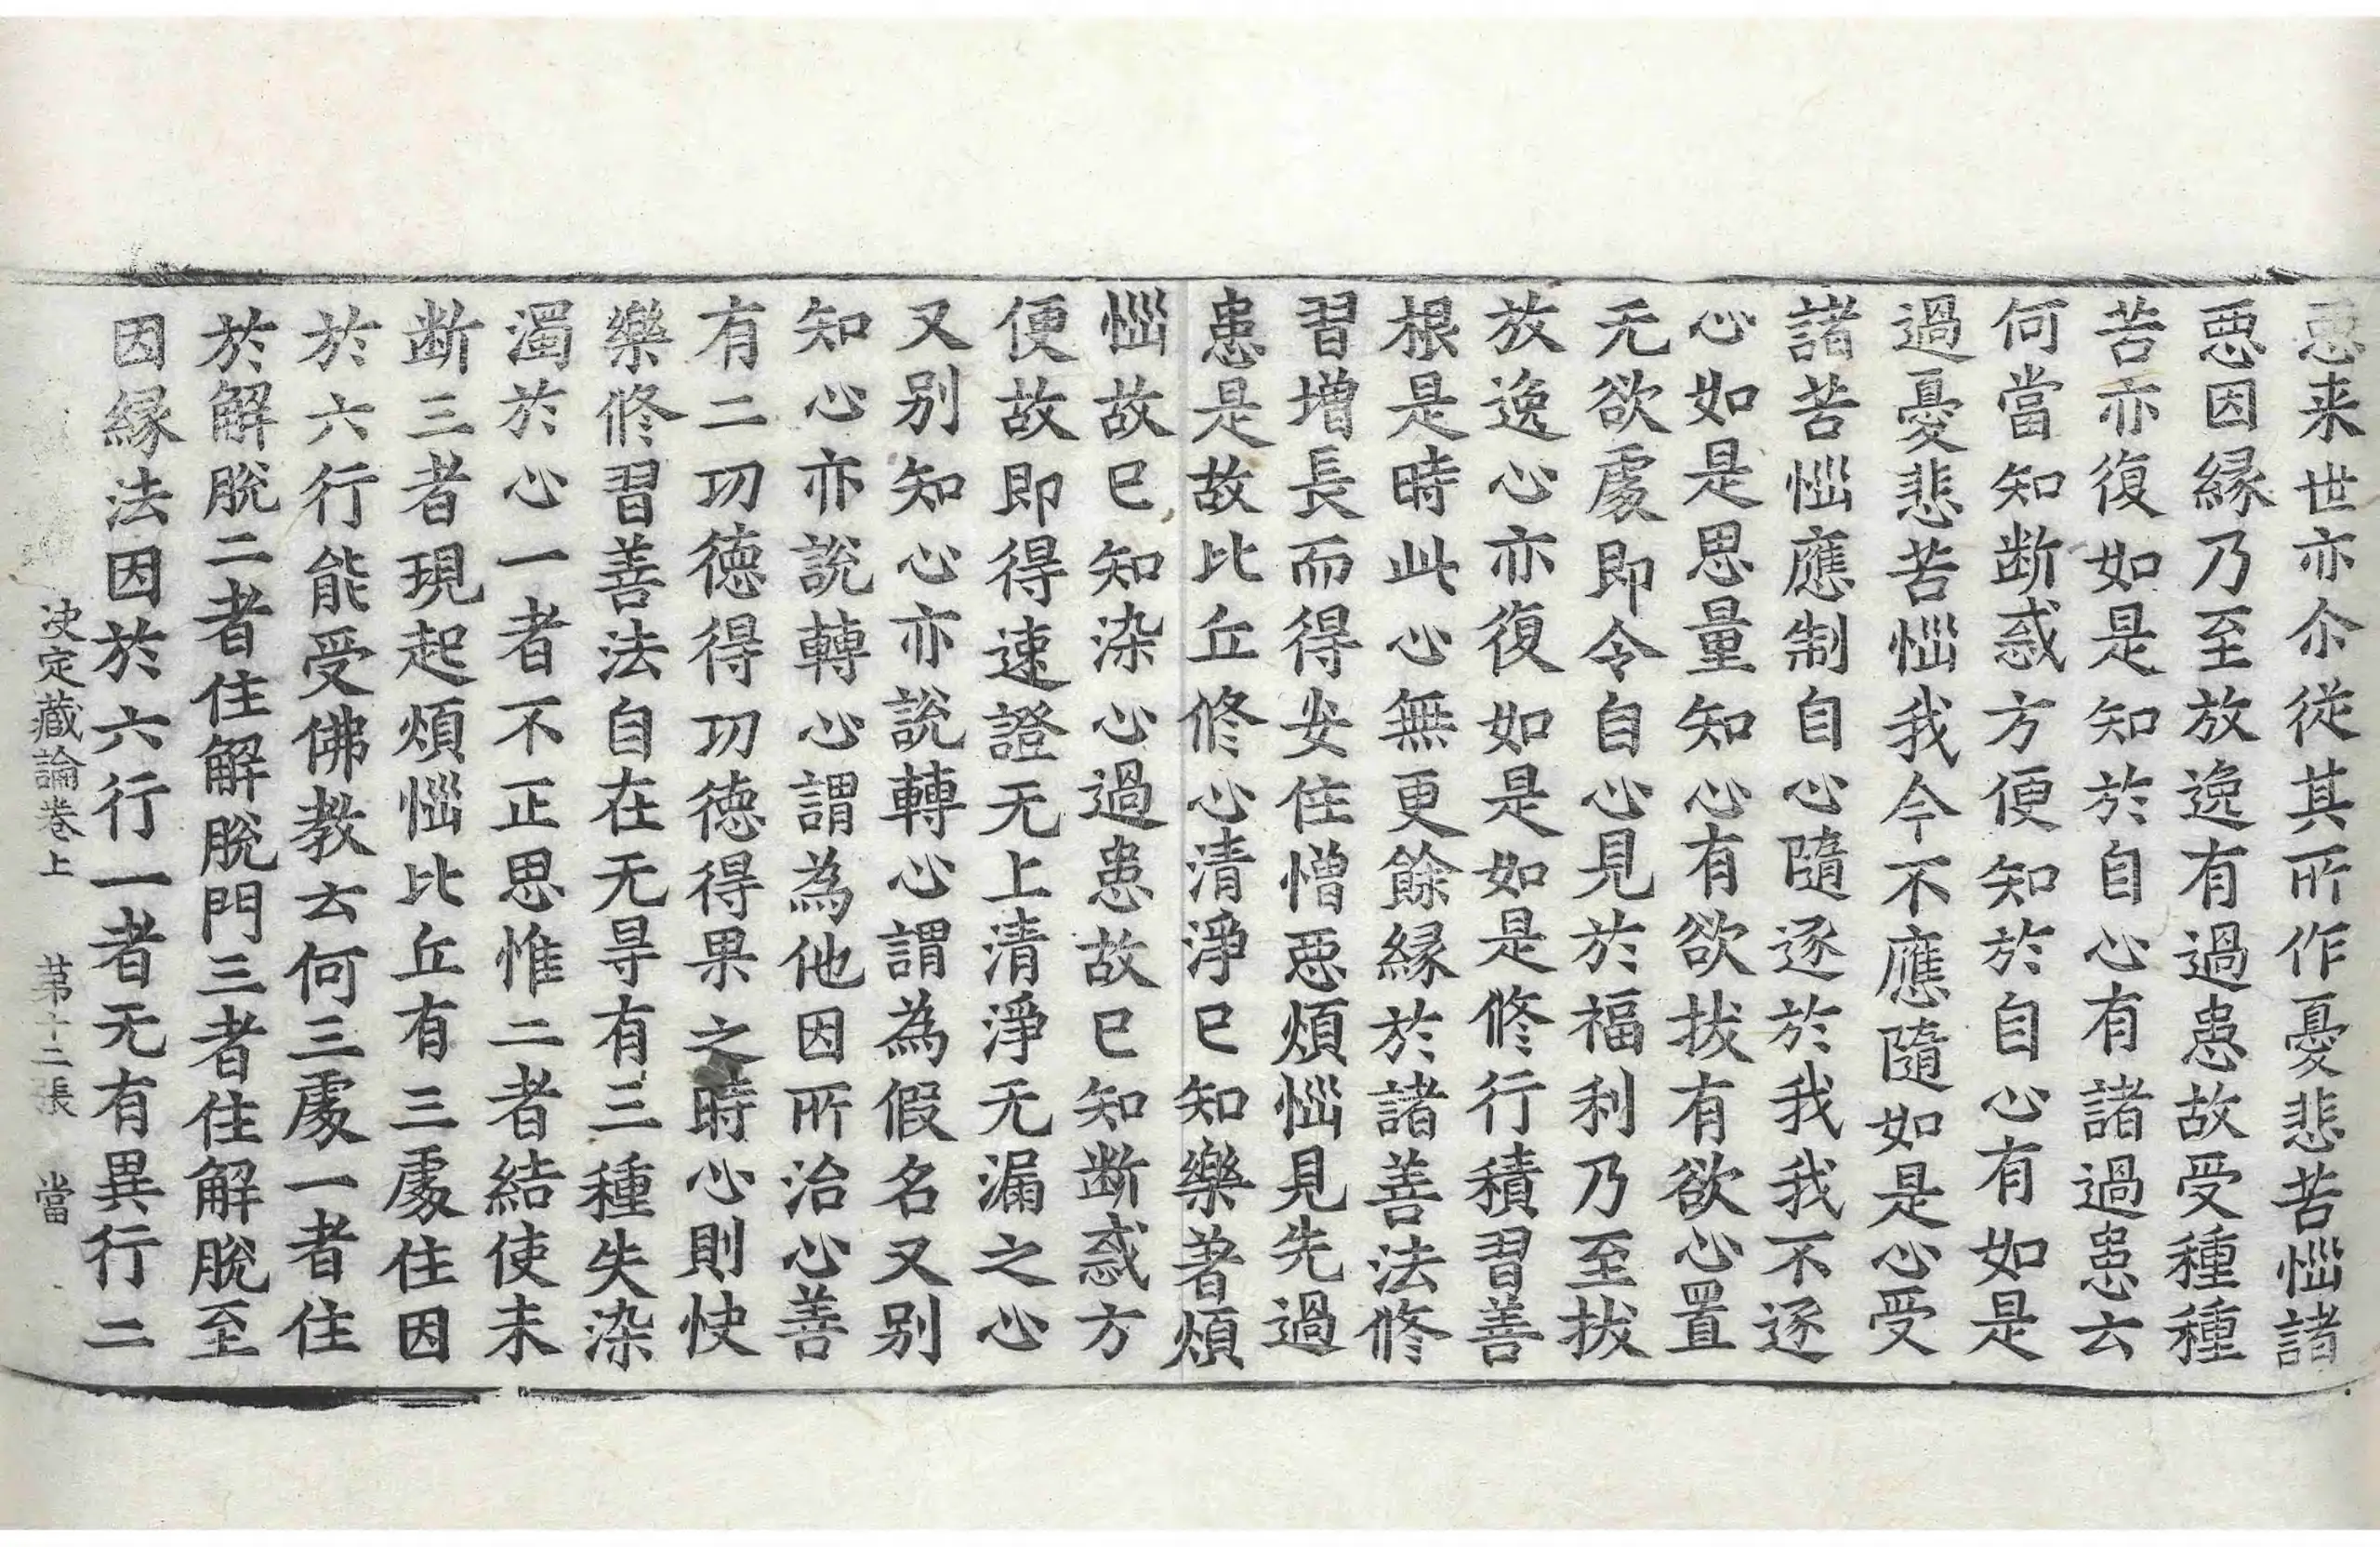 惡来世亦尒從其所作憂悲苦惱諸
惡因縁乃至放逸有過患故受種種
苦亦復如是知於自心有諸過患云
何當知断惑方便知於自心有如是
過憂悲苦惱我今不應隨如是心受
諸苦惱應制自心隨逐於我我不逐
心如是思量知心有欲拔有欲心置
无欲處即令自心見於福利乃至拔
放逸心亦復如是如是修行積習善
根是時此心無更餘縁於諸善法修
習增長而得安住憎惡煩惱見先過
患是故比丘修心清淨已知樂著煩
惱故已知染心過患故已知断惑方
便故即得速證无上清淨无漏之心
又别知心亦說轉心謂為假名又别
知心亦說轉心謂為他因所治心善
有二功徳得功徳得果之時心則快
樂修習善法自在无㝵有三種失染
濁於心一者不正思惟二者結使未
断三者現起煩惱比丘有三處住因
於六行能受佛教云何三處一者住
於解脫二者住解脫門三者住解脫至
因縁法因於六行一者无有異行二
决定藏論卷上 苐十二張 當